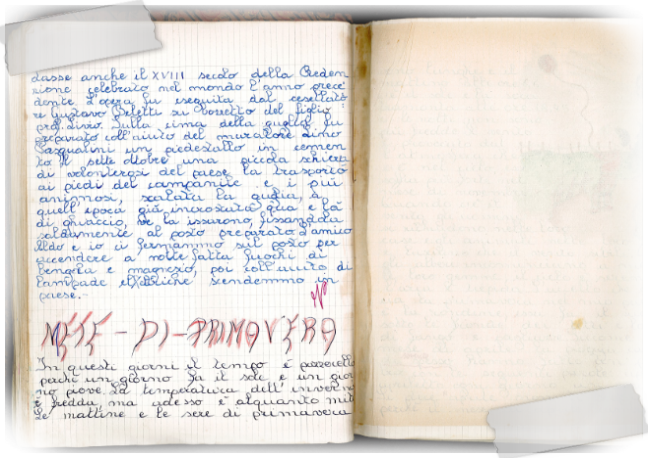 dasse anche il XVIII secolo della Reden
zione celebrato nel mondo l'anno prece
dente. L'opera fu eseguita dal cesellato
re Gustavo su bozzetto del figlio
prof. Livio. Sulla cima della guglia fu
preparato coll'aiuto del muratore Dino
Pasqualini un piedestallo in cemen
to il sette ottobre una piccola schiera
di volonterosi del paese la trasportò
ai piedi del campanile e i più
animosi, scalata la guglia, a
quell'epoca già incrostata qua e là
di ghiaccio, ve la issarono, fissandola
saldamente al posto preparato. L'amico
Aldo e io ci fermammo sul posto per
accendere a notte fatta fuochi di
bengala e magnesio, poi coll'aiuto di
lampade elettriche scendemmo in
paese.-
MESE - DI - PRIMAVERA
In questi giorni il tempo è pazzerello
perché un giorno fa il sole e un gior
no piove. La temperatura dell'inverno
è fredda, ma adesso è alquanto mite
Le mattine e le sere di primavera